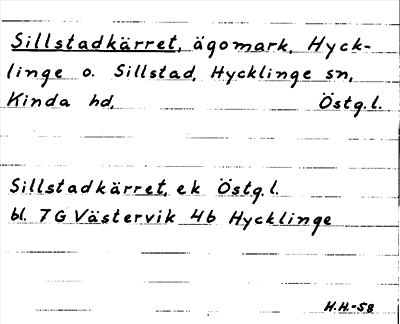 Sillstadkärret, ägomark, Hyck-
linge o. Sillstad, Hycklinge sn,
Kinda hd, Östg.l.
Sillstadkärret, ek Östg.l.
bl. 7G Västervik 4b Hycklinge
H.H.-58